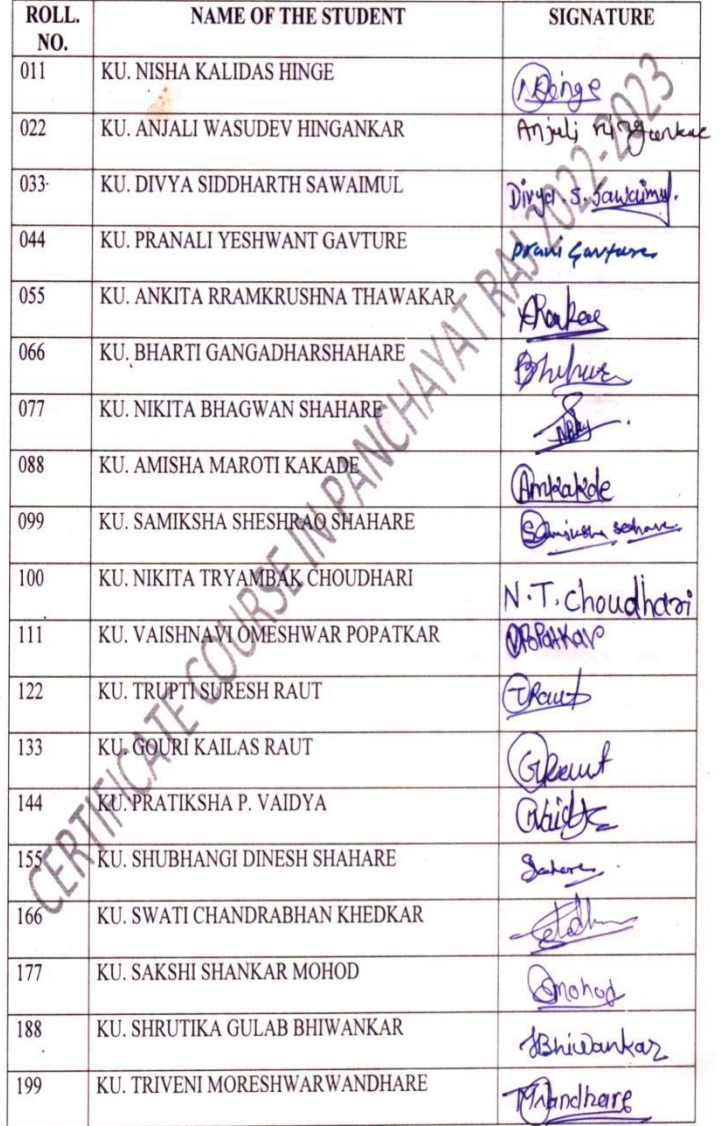 ROLL. NO. NAME OF THE STUDENT SIGNATURE
011 KU. NISHA KALIDAS HINGE NHinge
022 KU. ANJALI WASUDEV HINGANKAR Anjali Hingankar
033 KU. DIVYA SIDDHARTH SAWAIMUL Divya. S. Sawaimul.
044 KU. PRANALI YESHWANT GAVTURE
055 KU. ANKITA RRAMKRUSHNA THAWAKAR
066 KU. BHARTI GANGADHARSHAHARE
077 KU. NIKITA BHAGWAN SHAHARE
088 KU. AMISHA MAROTI KAKADE Amkakde
099 KU. SAMIKSHA SHESHRAO SHAHARE
100 KU. NIKITA TRYAMBAK CHOUDHARI N.T. Choudhari
111 KU. VAISHNAVI OMESHWAR POPATKAR VPopatkar
122 KU. TRUPTI SURESH RAUT TRaut
133 KU. GOURI KAILAS RAUT GRaut
144 KU. PRATIKSHA P. VAIDYA
155 KU. SHUBHANGI DINESH SHAHARE
166 KU. SWATI CHANDRABHAN KHEDKAR
177 KU. SAKSHI SHANKAR MOHOD Smohod
188 KU. SHRUTIKA GULAB BHIWANKAR SBhiwankar
199 KU. TRIVENI MORESHWARWANDHARE
CERTIFICATE COURSE IN PANCHAYAT RAJ 2022-2023